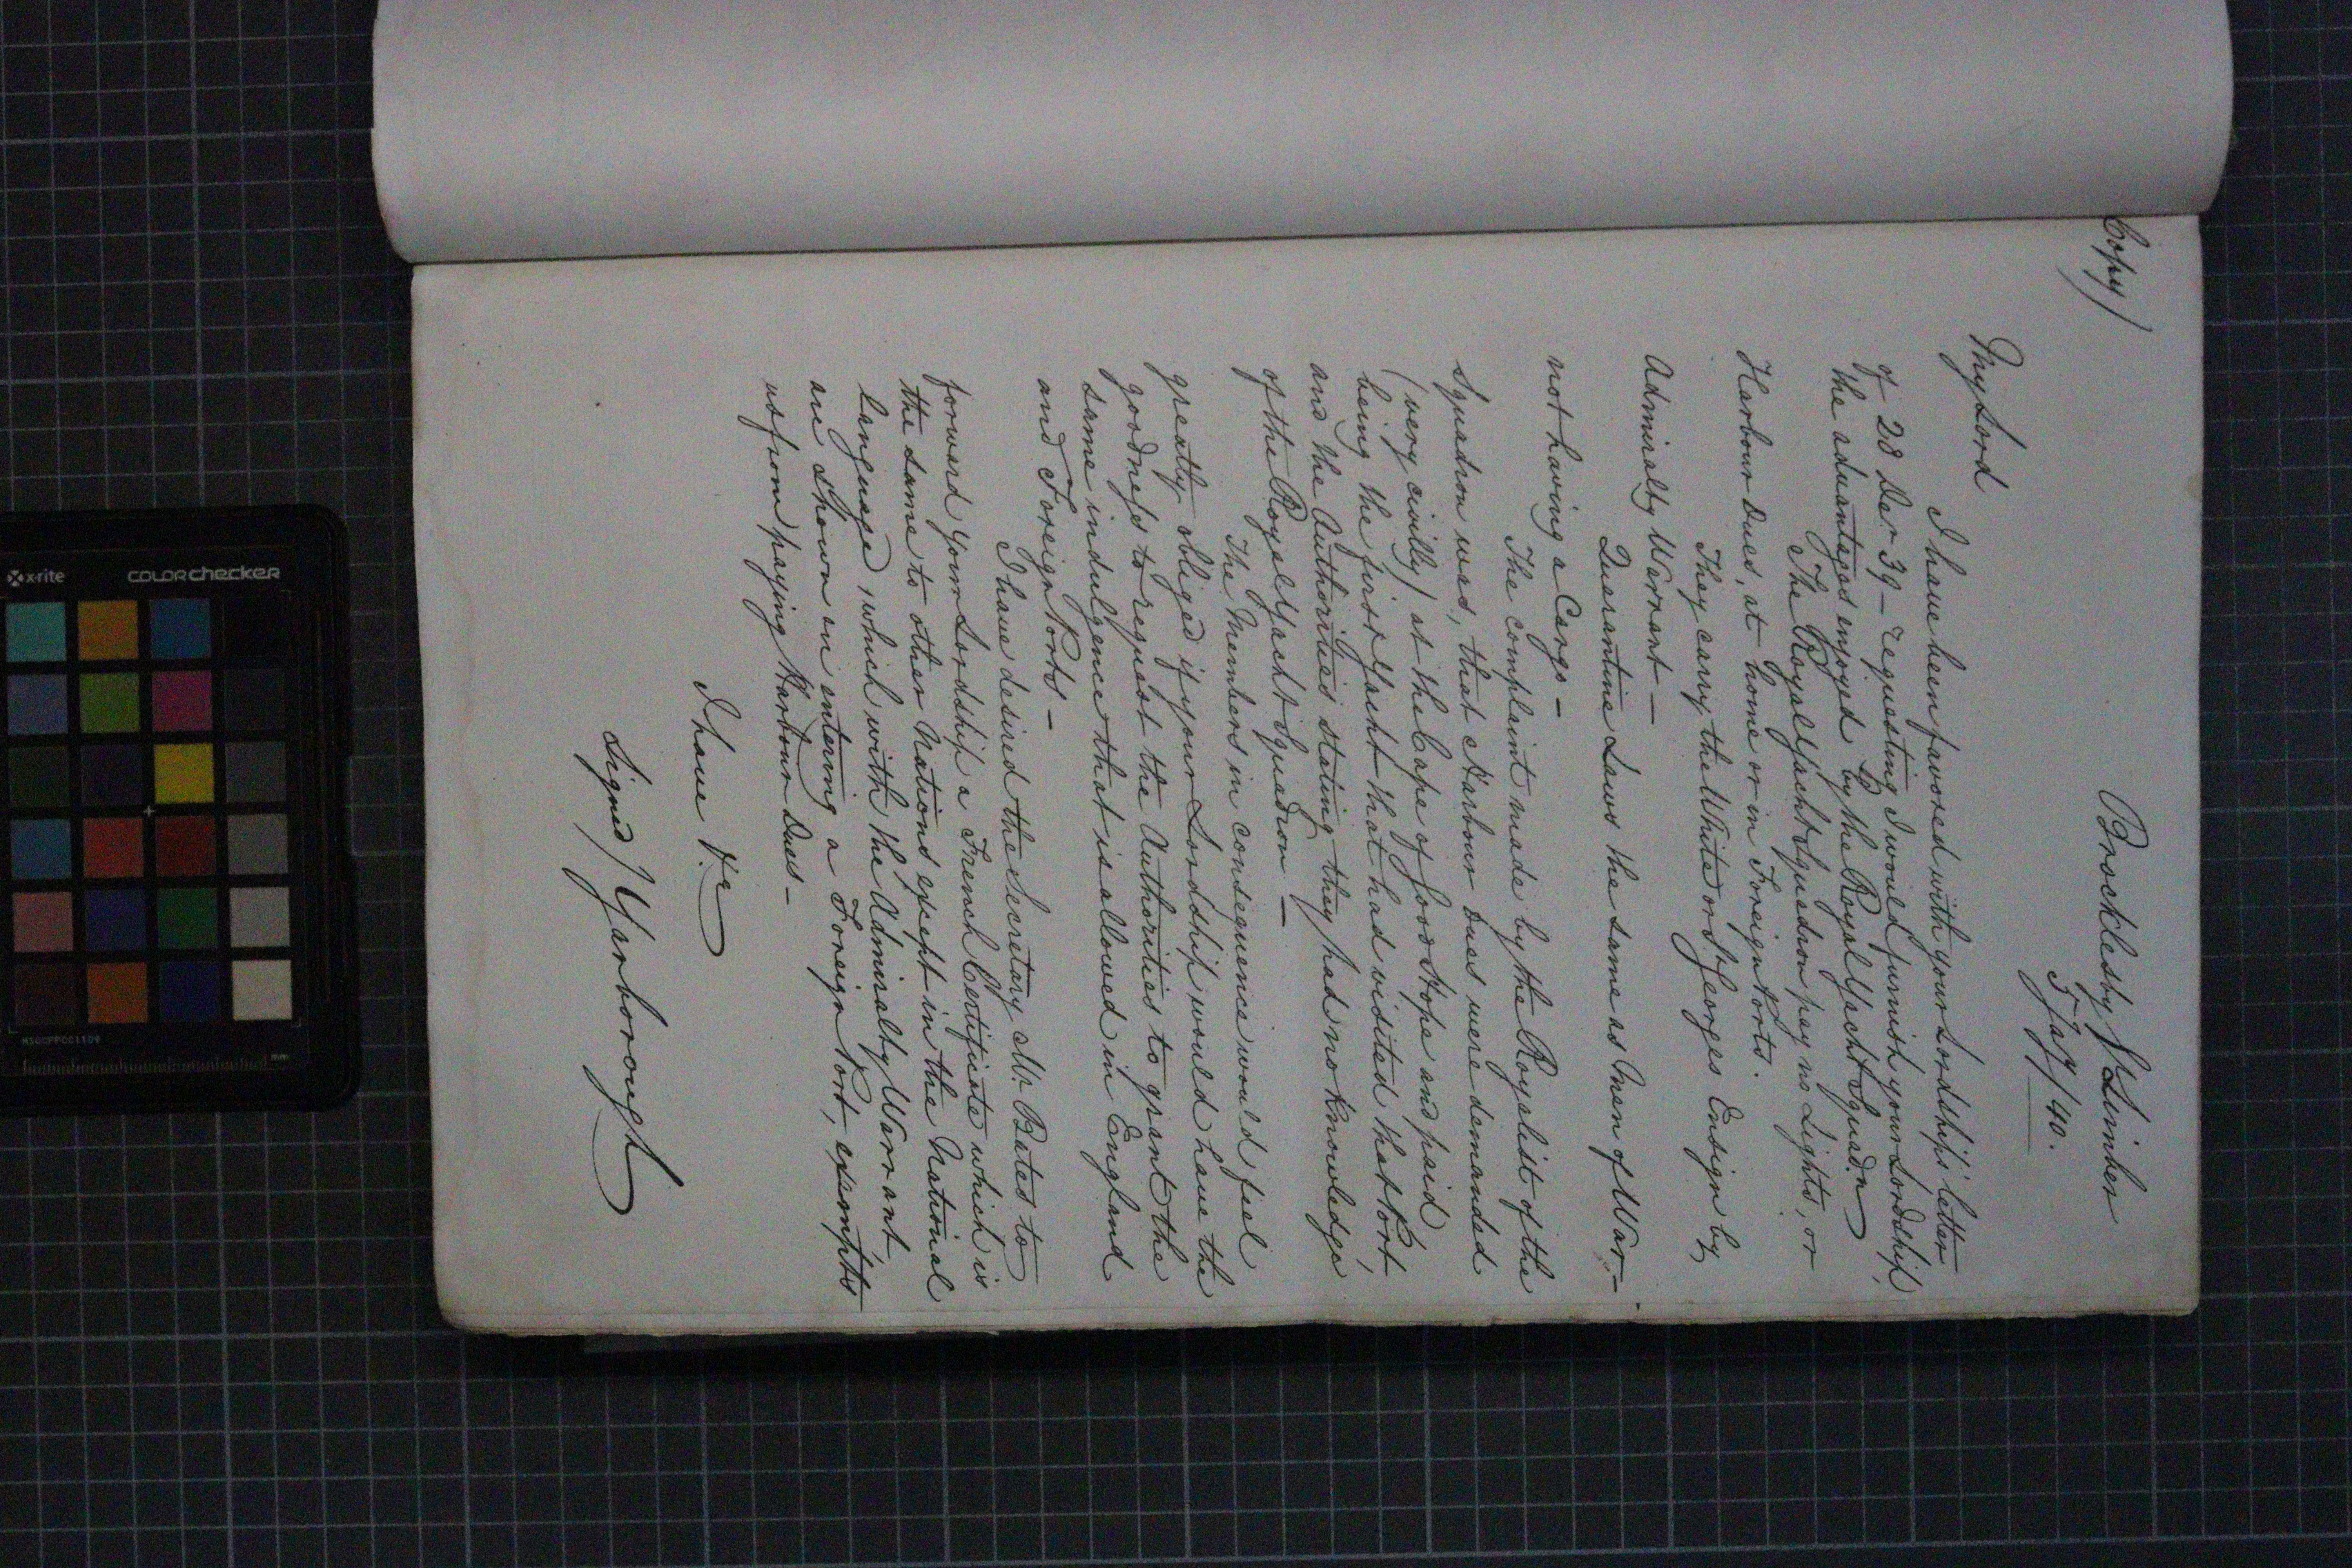 Copy)
Brocklesby / Limber
5 Jay / 40.
My Lord
I have been favored with your Lordship's letter
of 28 Decr 39 – requesting I would furnish your Lordship,
the advantages enjoyed by the Royal Yacht Squadn
The Royal Yacht Squadron pay no Lights, or
Harbour Dues, at home or in Foreign Ports.
They carry the White or St Georges Ensign by
Admiralty Warrant —
Quarantine Laws the same as Men of War –
not having a Cargo –
The complaint made by the Royalist of the
Squadron was, that Harbour Dues were demanded
(very civilly) at the Cape of Good Hope and paid
being the first Yacht that had visited that Port,
and the Authorities stating they had no knowledge
of the Royal Yacht Squadron –
The Members in consequence would feel
greatly obliged if your Lordship would have the
goodness to request the Authorities to grant the
same indulgence that is allowed in England
and Foreign Ports –
I have desired the Secretary Mr. Bates to
forward your Lordship a French Certificate which is
the same to other Nations except in the National
language, which with the Admiralty Warrant,
are shown on entering a Foreign Port, exempts
us from paying Harbour Dues –
I have &c
Signed) Yarborough
x-rite colorchecker
MSCCPPCC1109
mm